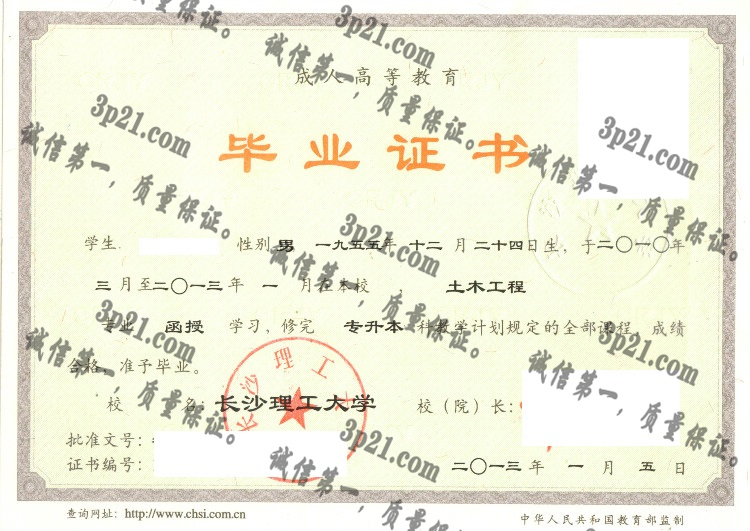 成人高等教育
毕业证书
学生 性别 男 一九五五年 十二 月 二十四日生，于二〇一〇年
三 月至二〇一三年 一 月在本校 土木工程
专业 函授 学习，修完 专升本 科教学计划规定的全部课程，成绩
合格，准予毕业。
校 名：长沙理工大学 校（院）长：
批准文号：
证书编号：
二〇一三年 一 月 五 日
查询网址：http://www.chsi.com.cn 中华人民共和国教育部监制
长沙理工大
3p21.com
诚信第一，质量保证。
3p21.com
诚信第一，质量保证。
3p21.com
诚信第一，质量保证。
3p21.com
诚信第一，质量保证。
3p21.com
诚信第一，质量保证。
3p21.com
诚信第一，质量保证。
3p21.com
诚信第一，质量保证。
3p21.com
诚信第一，质量保证。